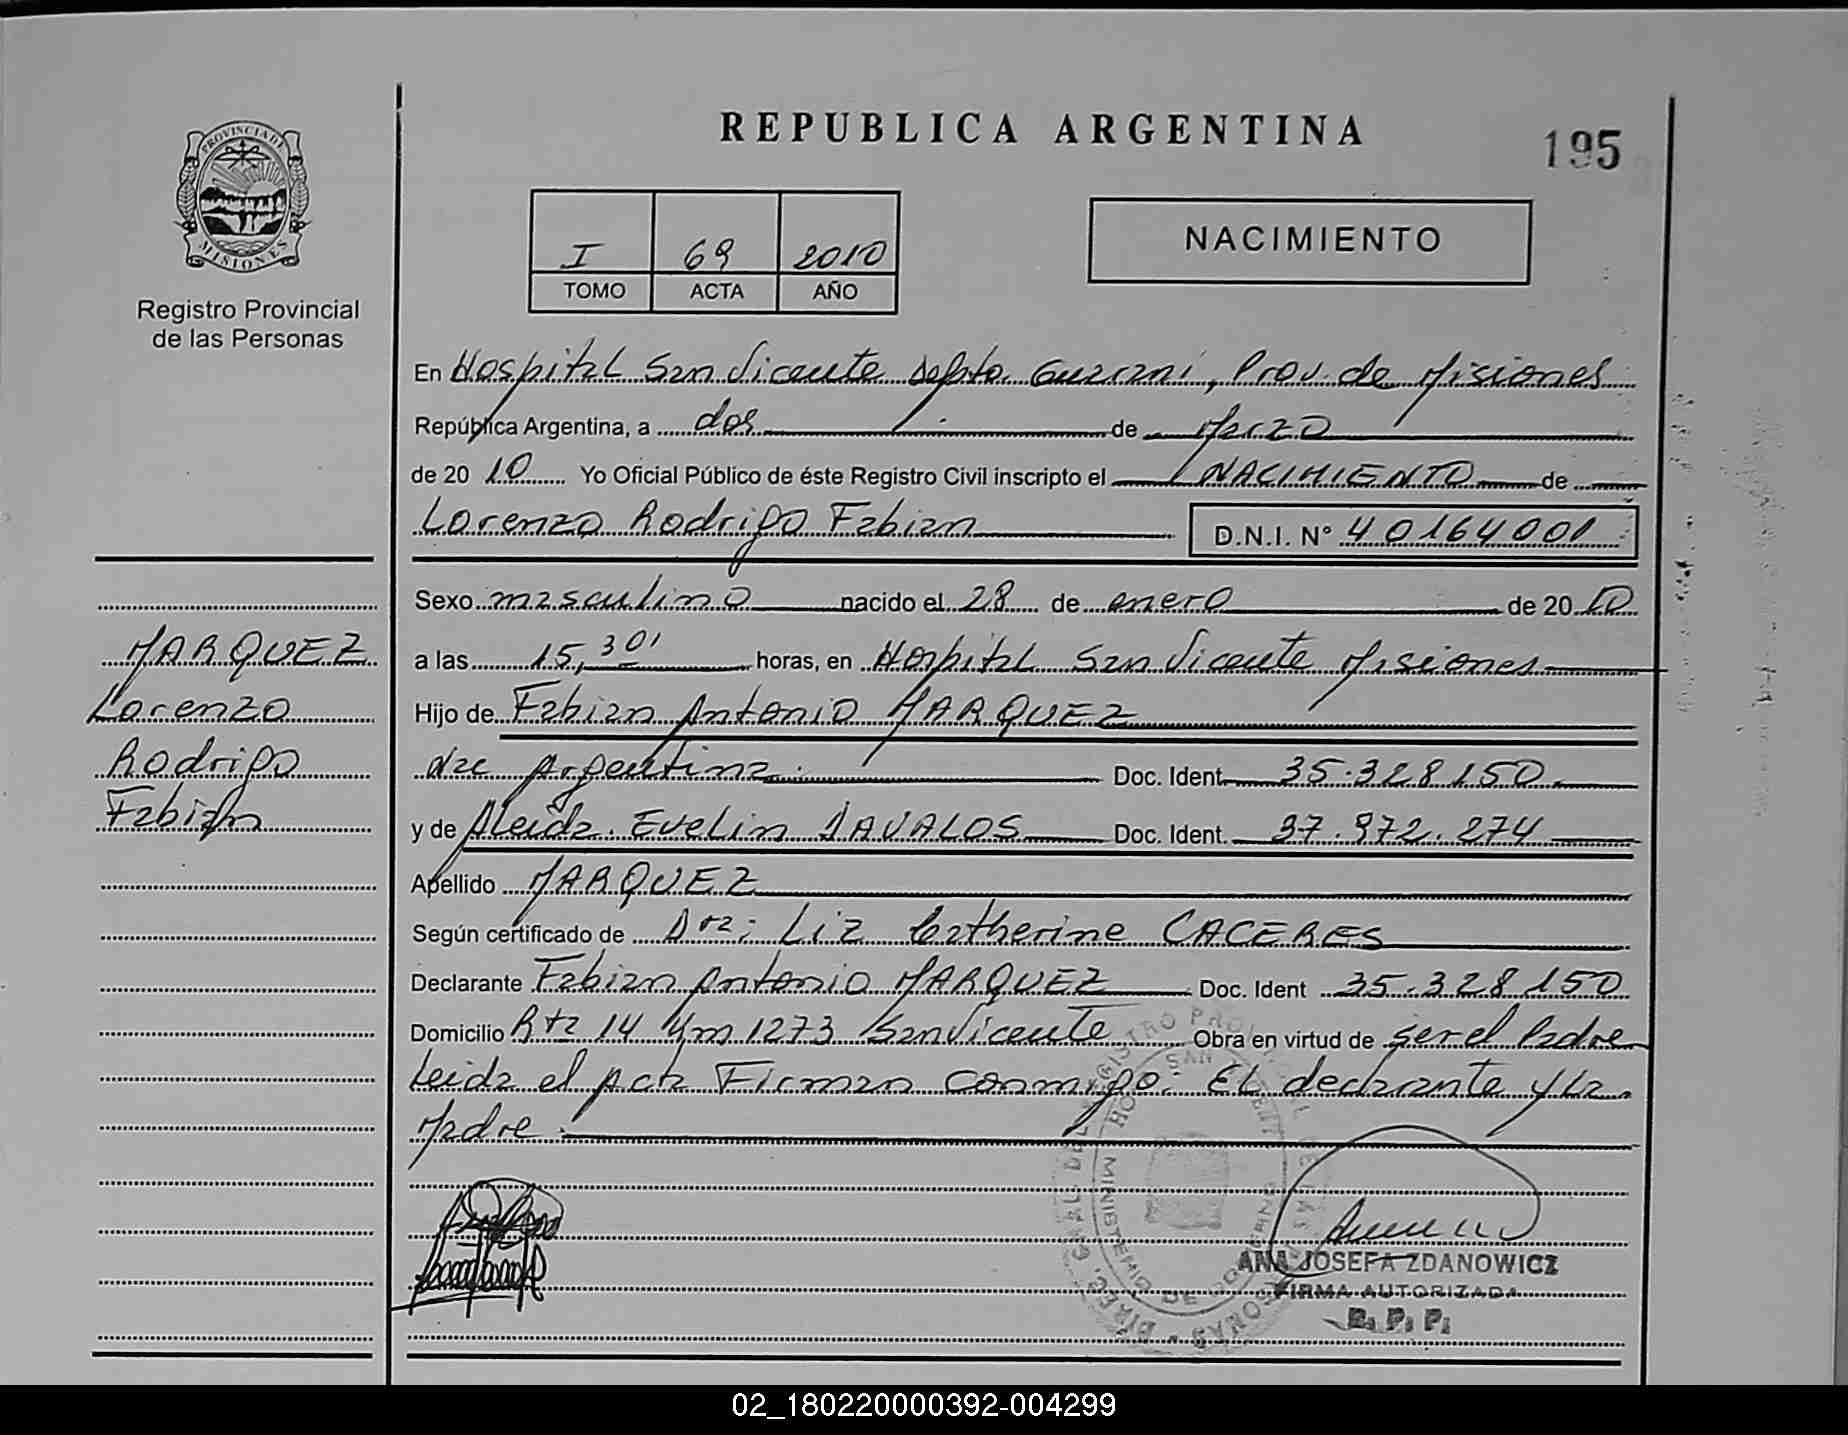 REPUBLICA ARGENTINA
195
PROVINCIA DE
MISIONES
Registro Provincial
de las Personas
I 69 2010
TOMO ACTA AÑO
NACIMIENTO
En Hospital San Vicente Depto. Guarani, Prov. de Misiones
República Argentina, a dos de Marzo
de 20 10 Yo Oficial Público de éste Registro Civil inscripto el NACIMIENTO de
Lorenzo Rodrigo Fabian D.N.I. N° 40164001
Sexo masculino nacido el 28 de enero de 20 10
a las 15,30' horas, en Hospital San Vicente Misiones
Hijo de Fabian Antonio MARQUEZ
Argentina. Doc. Ident. 35.328.150.
y de Aleida Evelin DAVALOS Doc. Ident. 37.972.274
Apellido MARQUEZ
Según certificado de Dra: Liz Catherine CACERES
Declarante Fabian Antonio MARQUEZ Doc. Ident 35.328.150
Domicilio Rta 14 Km 1273 San Vicente Obra en virtud de ser el Padre
Leida el Acta Firman conmigo. El declarante y La
Madre
MARQUEZ
Lorenzo
Rodrigo
Fabian
ANA JOSEFA ZDANOWICZ
FIRMA AUTORIZADA
R. P. P.
02_180220000392-004299